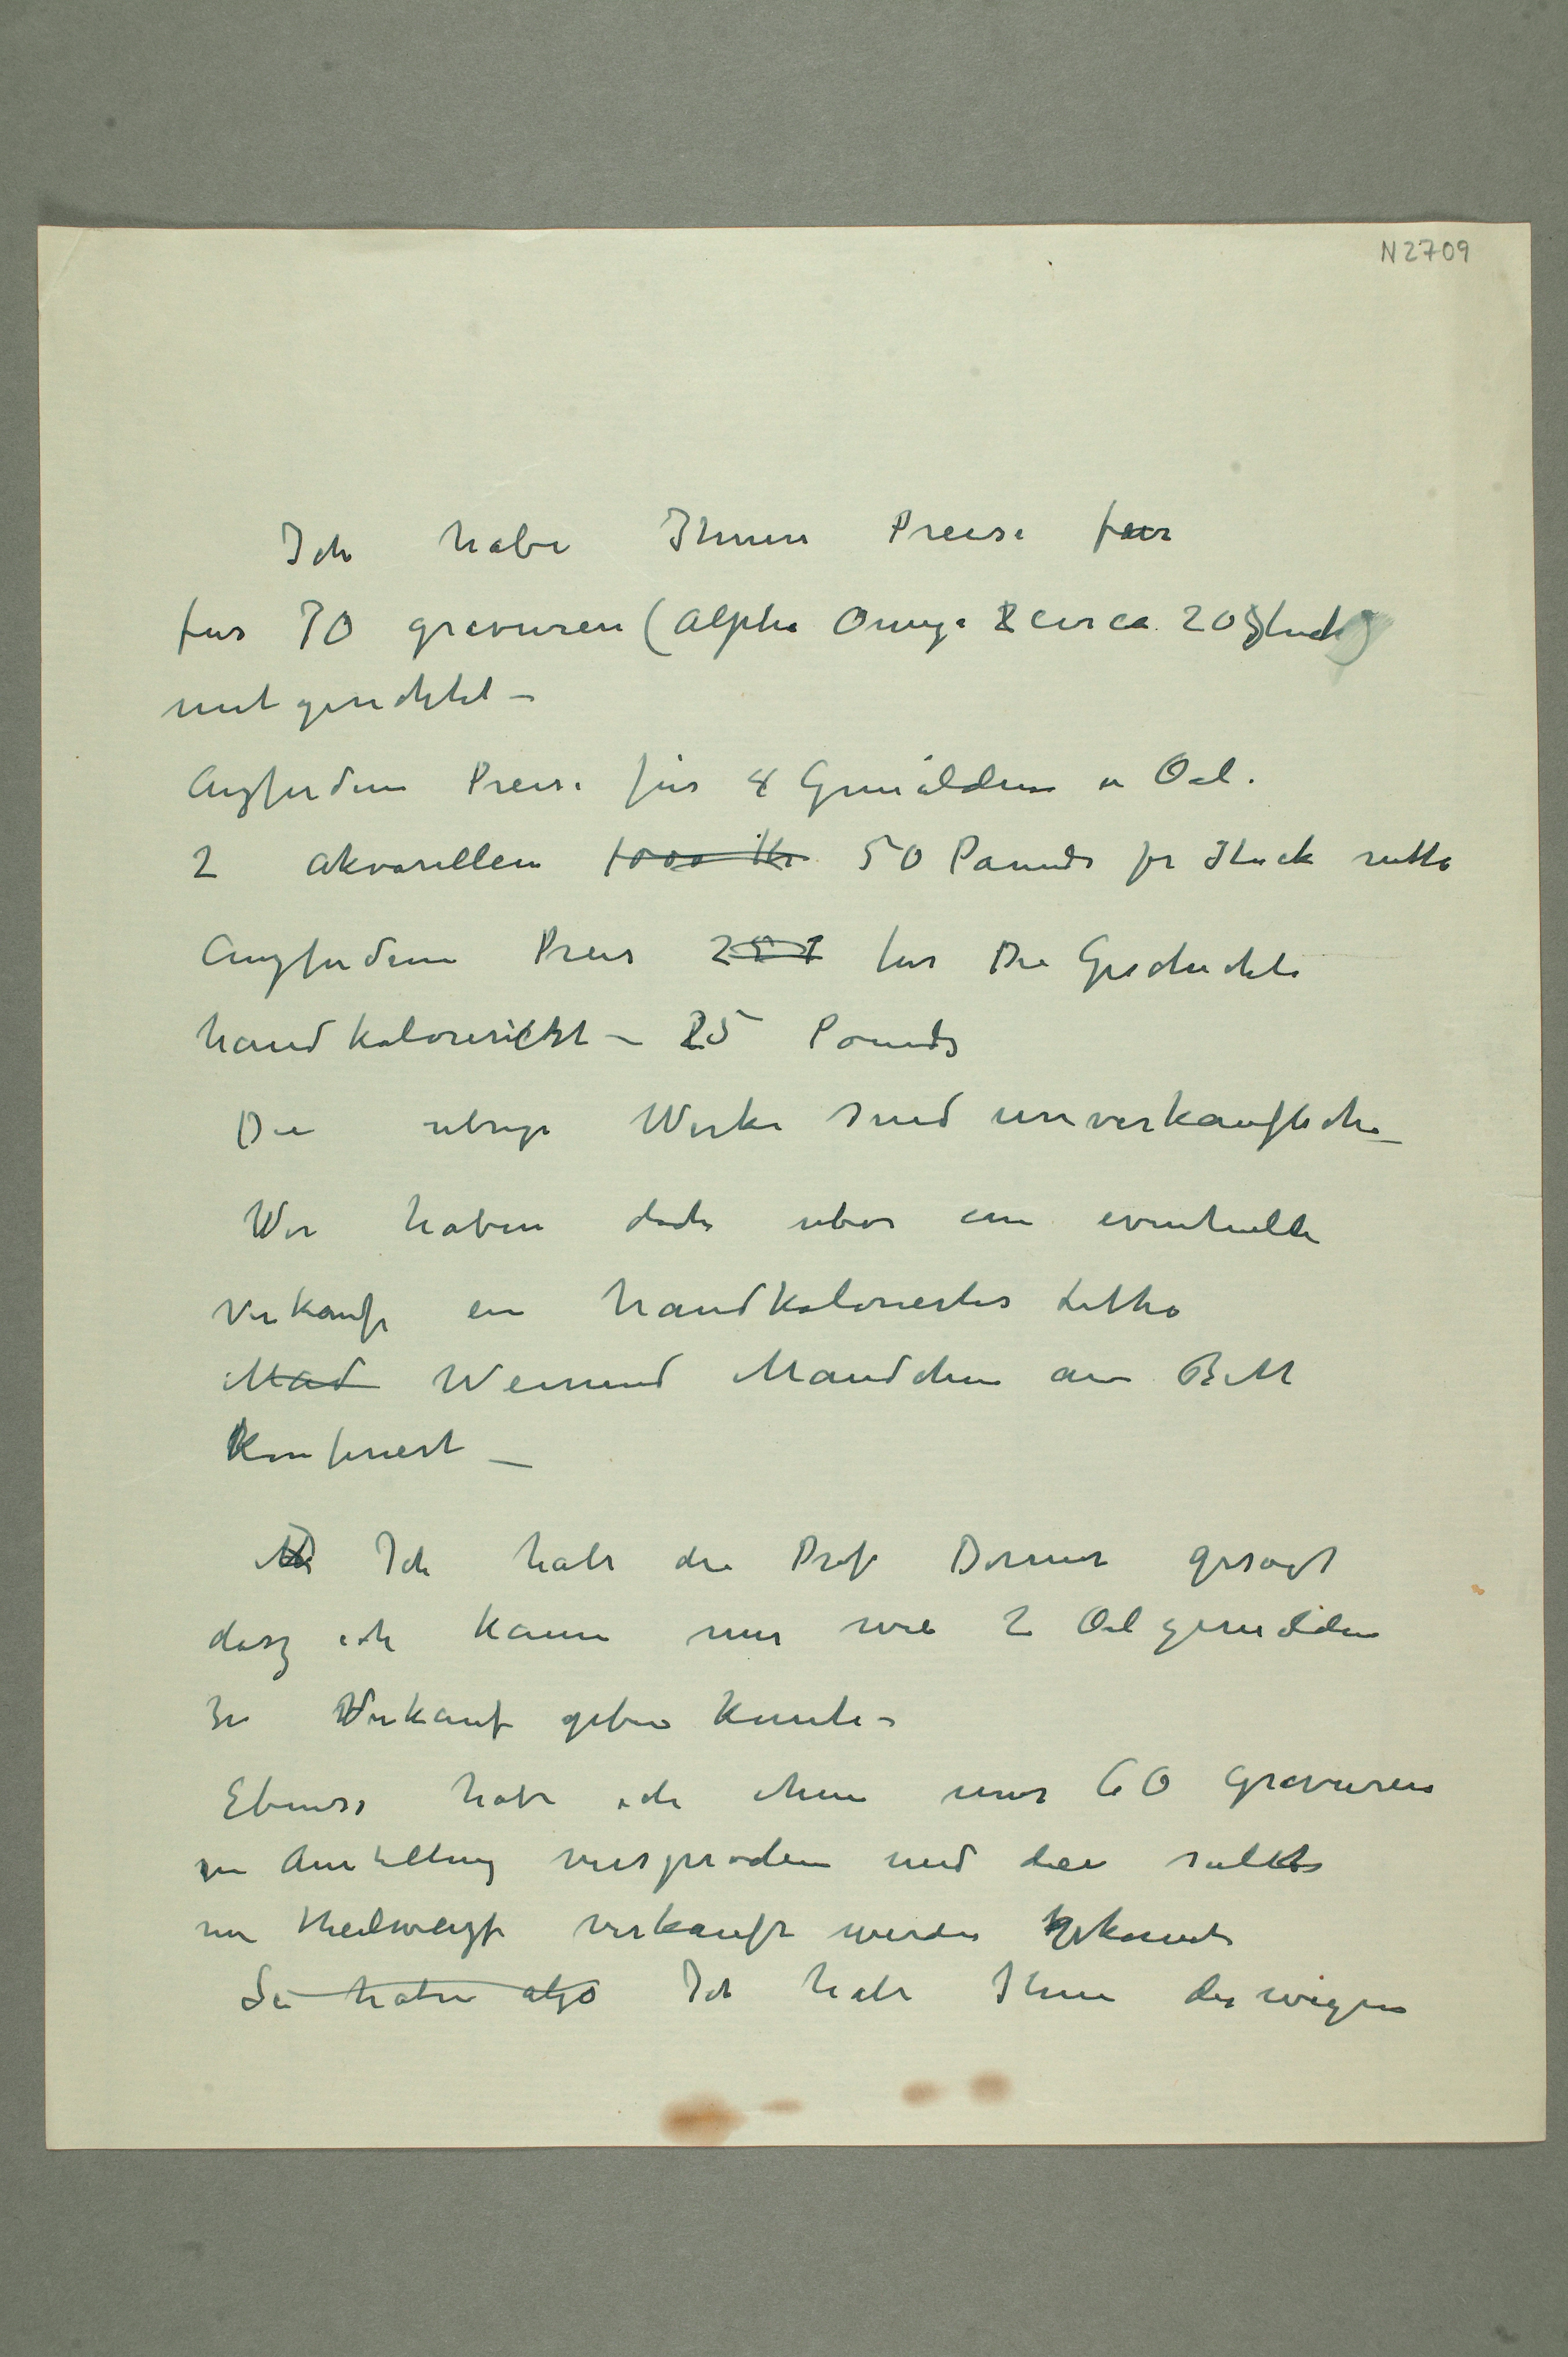 N 2709
Ich habe Ihnen Preise fur
fur 70 gravuren (Alpha Omega circa 20 Stuck)
mitgerichtet –
Auzferdem Preise für 4 Gemälden in Oel.
2 akvarellen 1000 Kr 50 Pounds pr Stuck netto
Auzferdem Preis 25 für Die Geschichte
handkoloriert – 25 Pounds
Die ubrige Werke sind unverkaufliche –
Wir haben doch uber ein eventuelle
Verkauf ein handkoloriertes Litho
Mäd Weinend Maudchen am Bett
Konferiert –
Ich habe die Prof Dorner gesagt
dasz ich kaum nur wie 2 Oelgemälden
zu Verkauf geben kunte –
Ebenso habe ich ihm nur 60 Gravuren
in Austellung versprochen und die sollte
nur theilweize verkauft werden
Sie haben alzo Ich habe Ihnen deswegen